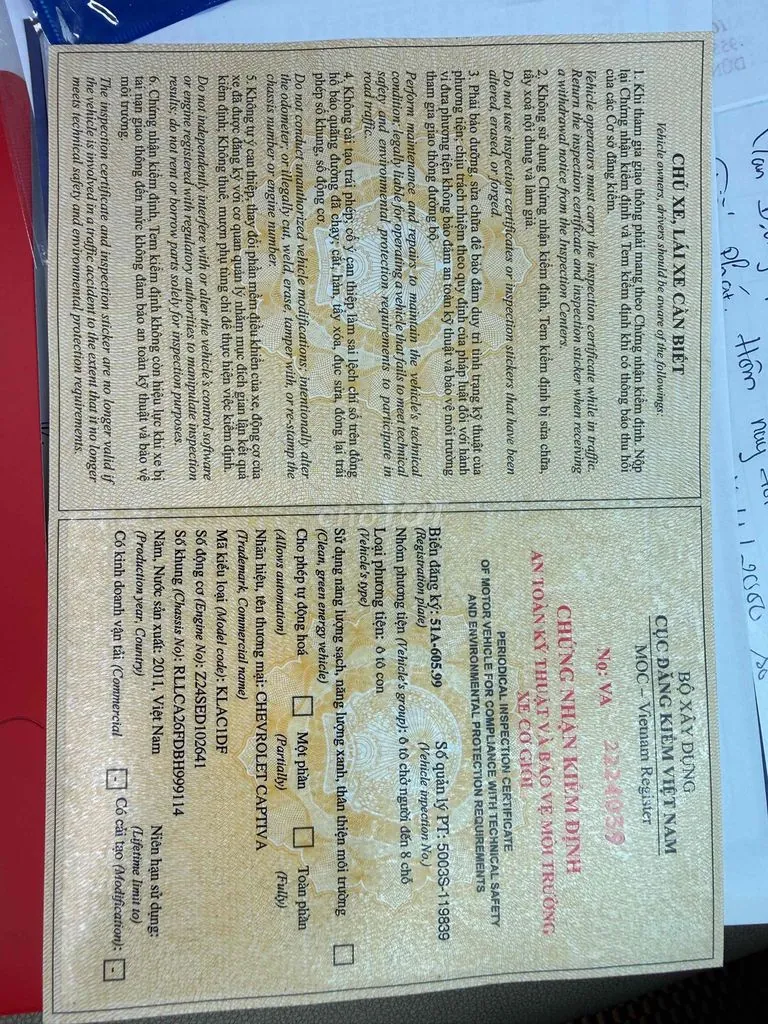 CHỦ XE, LÁI XE CẦN BIẾT
Vehicle owners, drivers should be aware of the followings:
1. Khi tham gia giao thông phải mang theo Chứng nhận kiểm định. Nộp
lại Chứng nhận kiểm định và Tem kiểm định khi có thông báo thu hồi
của các Cơ sở đăng kiểm.
Vehicle operators must carry the inspection certificate while in traffic.
Return the inspection certificate and inspection sticker when receiving
a withdrawal notice from the Inspection Centers.
2. Không sử dụng Chứng nhận kiểm định, Tem kiểm định bị sửa chữa,
tẩy xoá nội dung và làm giả.
Do not use inspection certificates or inspection stickers that have been
altered, erased, or forged.
3. Phải bảo dưỡng, sửa chữa để bảo đảm duy trì tình trạng kỹ thuật của
phương tiện; chịu trách nhiệm theo quy định của pháp luật đối với hành
vi đưa phương tiện không bảo đảm an toàn kỹ thuật và bảo vệ môi trường
tham gia giao thông đường bộ.
Perform maintenance and repairs to maintain the vehicle's technical
condition; legally liable for operating a vehicle that fails to meet technical
safety and environmental protection requirements to participate in
road traffic.
4. Không cải tạo trái phép; cố ý can thiệp làm sai lệch chỉ số trên đồng
hồ báo quãng đường đã chạy; cắt, hàn, tẩy xóa, đục sửa, đóng lại trái
phép số khung, số động cơ.
Do not conduct unauthorized vehicle modifications; intentionally alter
the odometer; or illegally cut, weld, erase, tamper with, or re-stamp the
chassis number or engine number.
5. Không tự ý can thiệp, thay đổi phần mềm điều khiển của xe, động cơ của
xe đã được đăng ký với cơ quan quản lý nhằm mục đích gian lận kết quả
kiểm định; Không thuê, mượn phụ tùng chỉ để thực hiện việc kiểm định.
Do not independently interfere with or alter the vehicle's control software
or engine registered with regulatory authorities to manipulate inspection
results; do not rent or borrow parts solely for inspection purposes.
6. Chứng nhận kiểm định, Tem kiểm định không còn hiệu lực khi xe bị
tai nạn giao thông đến mức không đảm bảo an toàn kỹ thuật và bảo vệ
môi trường.
The inspection certificate and inspection sticker are no longer valid if
the vehicle is involved in a traffic accident to the extent that it no longer
meets technical safety and environmental protection requirements.
BỘ XÂY DỰNG
CỤC ĐĂNG KIỂM VIỆT NAM
MOC – Vietnam Register
No: VA 2224039
CHỨNG NHẬN KIỂM ĐỊNH
AN TOÀN KỸ THUẬT VÀ BẢO VỆ MÔI TRƯỜNG
XE CƠ GIỚI
PERIODICAL INSPECTION CERTIFICATE
OF MOTOR VEHICLE FOR COMPLIANCE WITH TECHNICAL SAFETY
AND ENVIRONMENTAL PROTECTION REQUIREMENTS
Biển đăng ký: 51A-605.99 Số quản lý PT: 5003S-119839
(Registration plate) (Vehicle inpection No.)
Nhóm phương tiện (Vehicle's group): ô tô chở người đến 8 chỗ
Loại phương tiện: ô tô con
(Vehicle's type)
Sử dụng năng lượng sạch, năng lượng xanh, thân thiện môi trường
(Clean, green energy vehicle)
Cho phép tự động hoá Một phần Toàn phần
(Allows automation) (Partially) (Fully)
Nhãn hiệu, tên thương mại: CHEVROLET CAPTIVA
(Trademark, Commercial name)
Mã kiểu loại (Model code): KLAC1DF
Số động cơ (Engine No): Z24SED102641
Số khung (Chassis No): RLLCA26FDBH999114
Năm, Nước sản xuất: 2011, Việt Nam Niên hạn sử dụng:
(Production year, Country) (Lifetime limit to)
Có kinh doanh vận tải (Commercial - Có cải tạo (Modification): -
Hôm nay